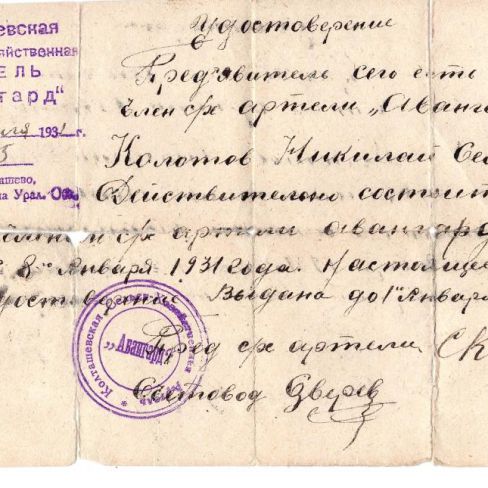 евская
яйственная
ЕЛЬ
гард"
1931 г.
ашево,
на Урал. Обл.
Удостоверение
Предъявитель сего есть
Член с/х артели „Аванг
Колотов Николай Се
Действительно состоит
с/х артели авангард
с 8го января 1931 года. Настояще
Выдана до 1го Января
Пред с/х артели СК
Счетовод Зверев
Колташевская
„Авангард"